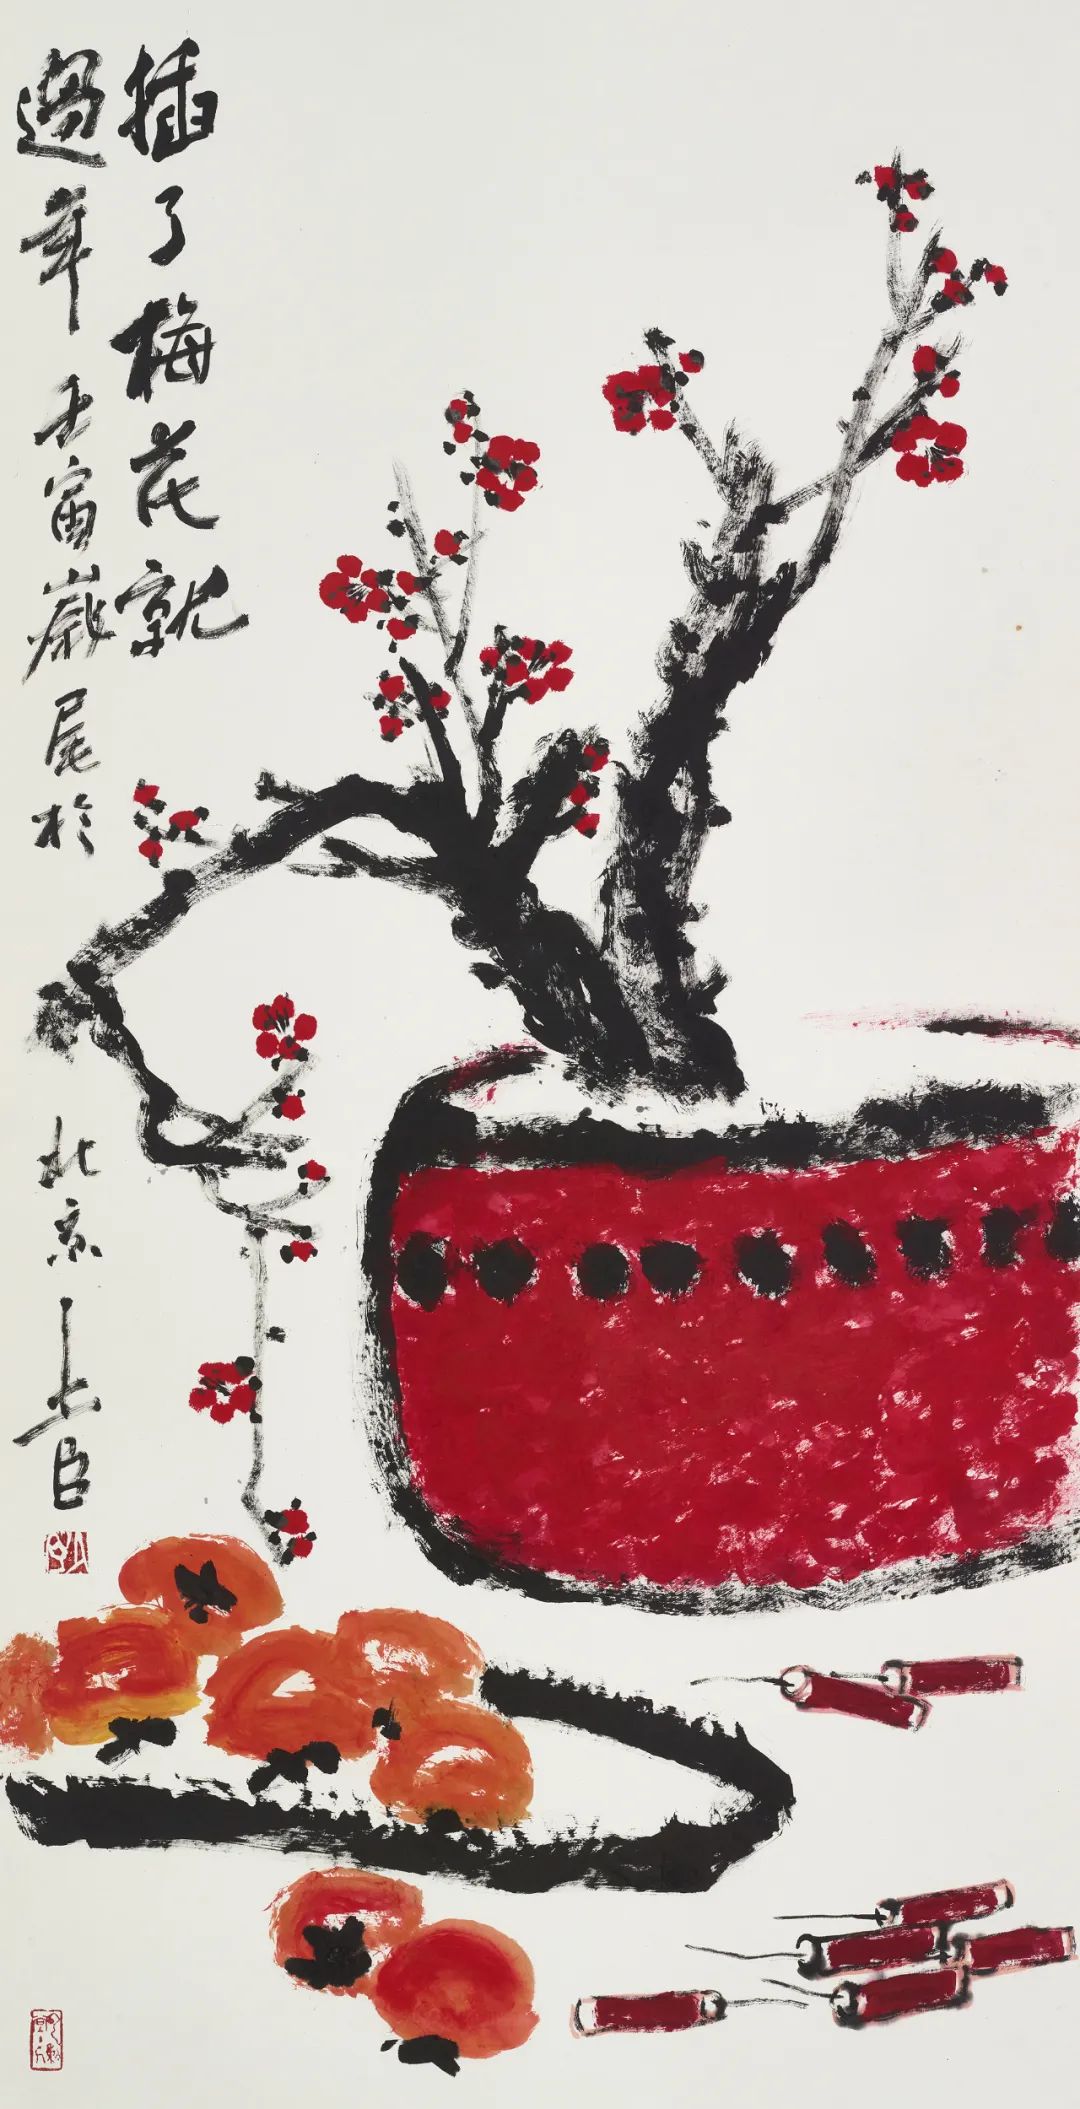 插了梅花就
過年 壬寅歲尾於北京